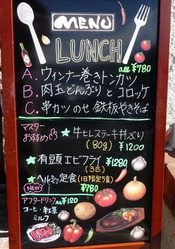 MENU
LUNCH
A. ウィンナー巻きトンカツ all ¥780
B. 肉玉どんぶりとコロッケ
C. 串カツのせ鉄板やきそば
マスター
おすすめ
★牛ヒレステーキ丼ぶり
(80g) ¥1200
★有頭エビフライ ¥1280
(3匹)
★ヘルシー定食 (1日限定5食)
New! ¥780
アフタードリンク all ¥120
コーヒー・紅茶
ミルク